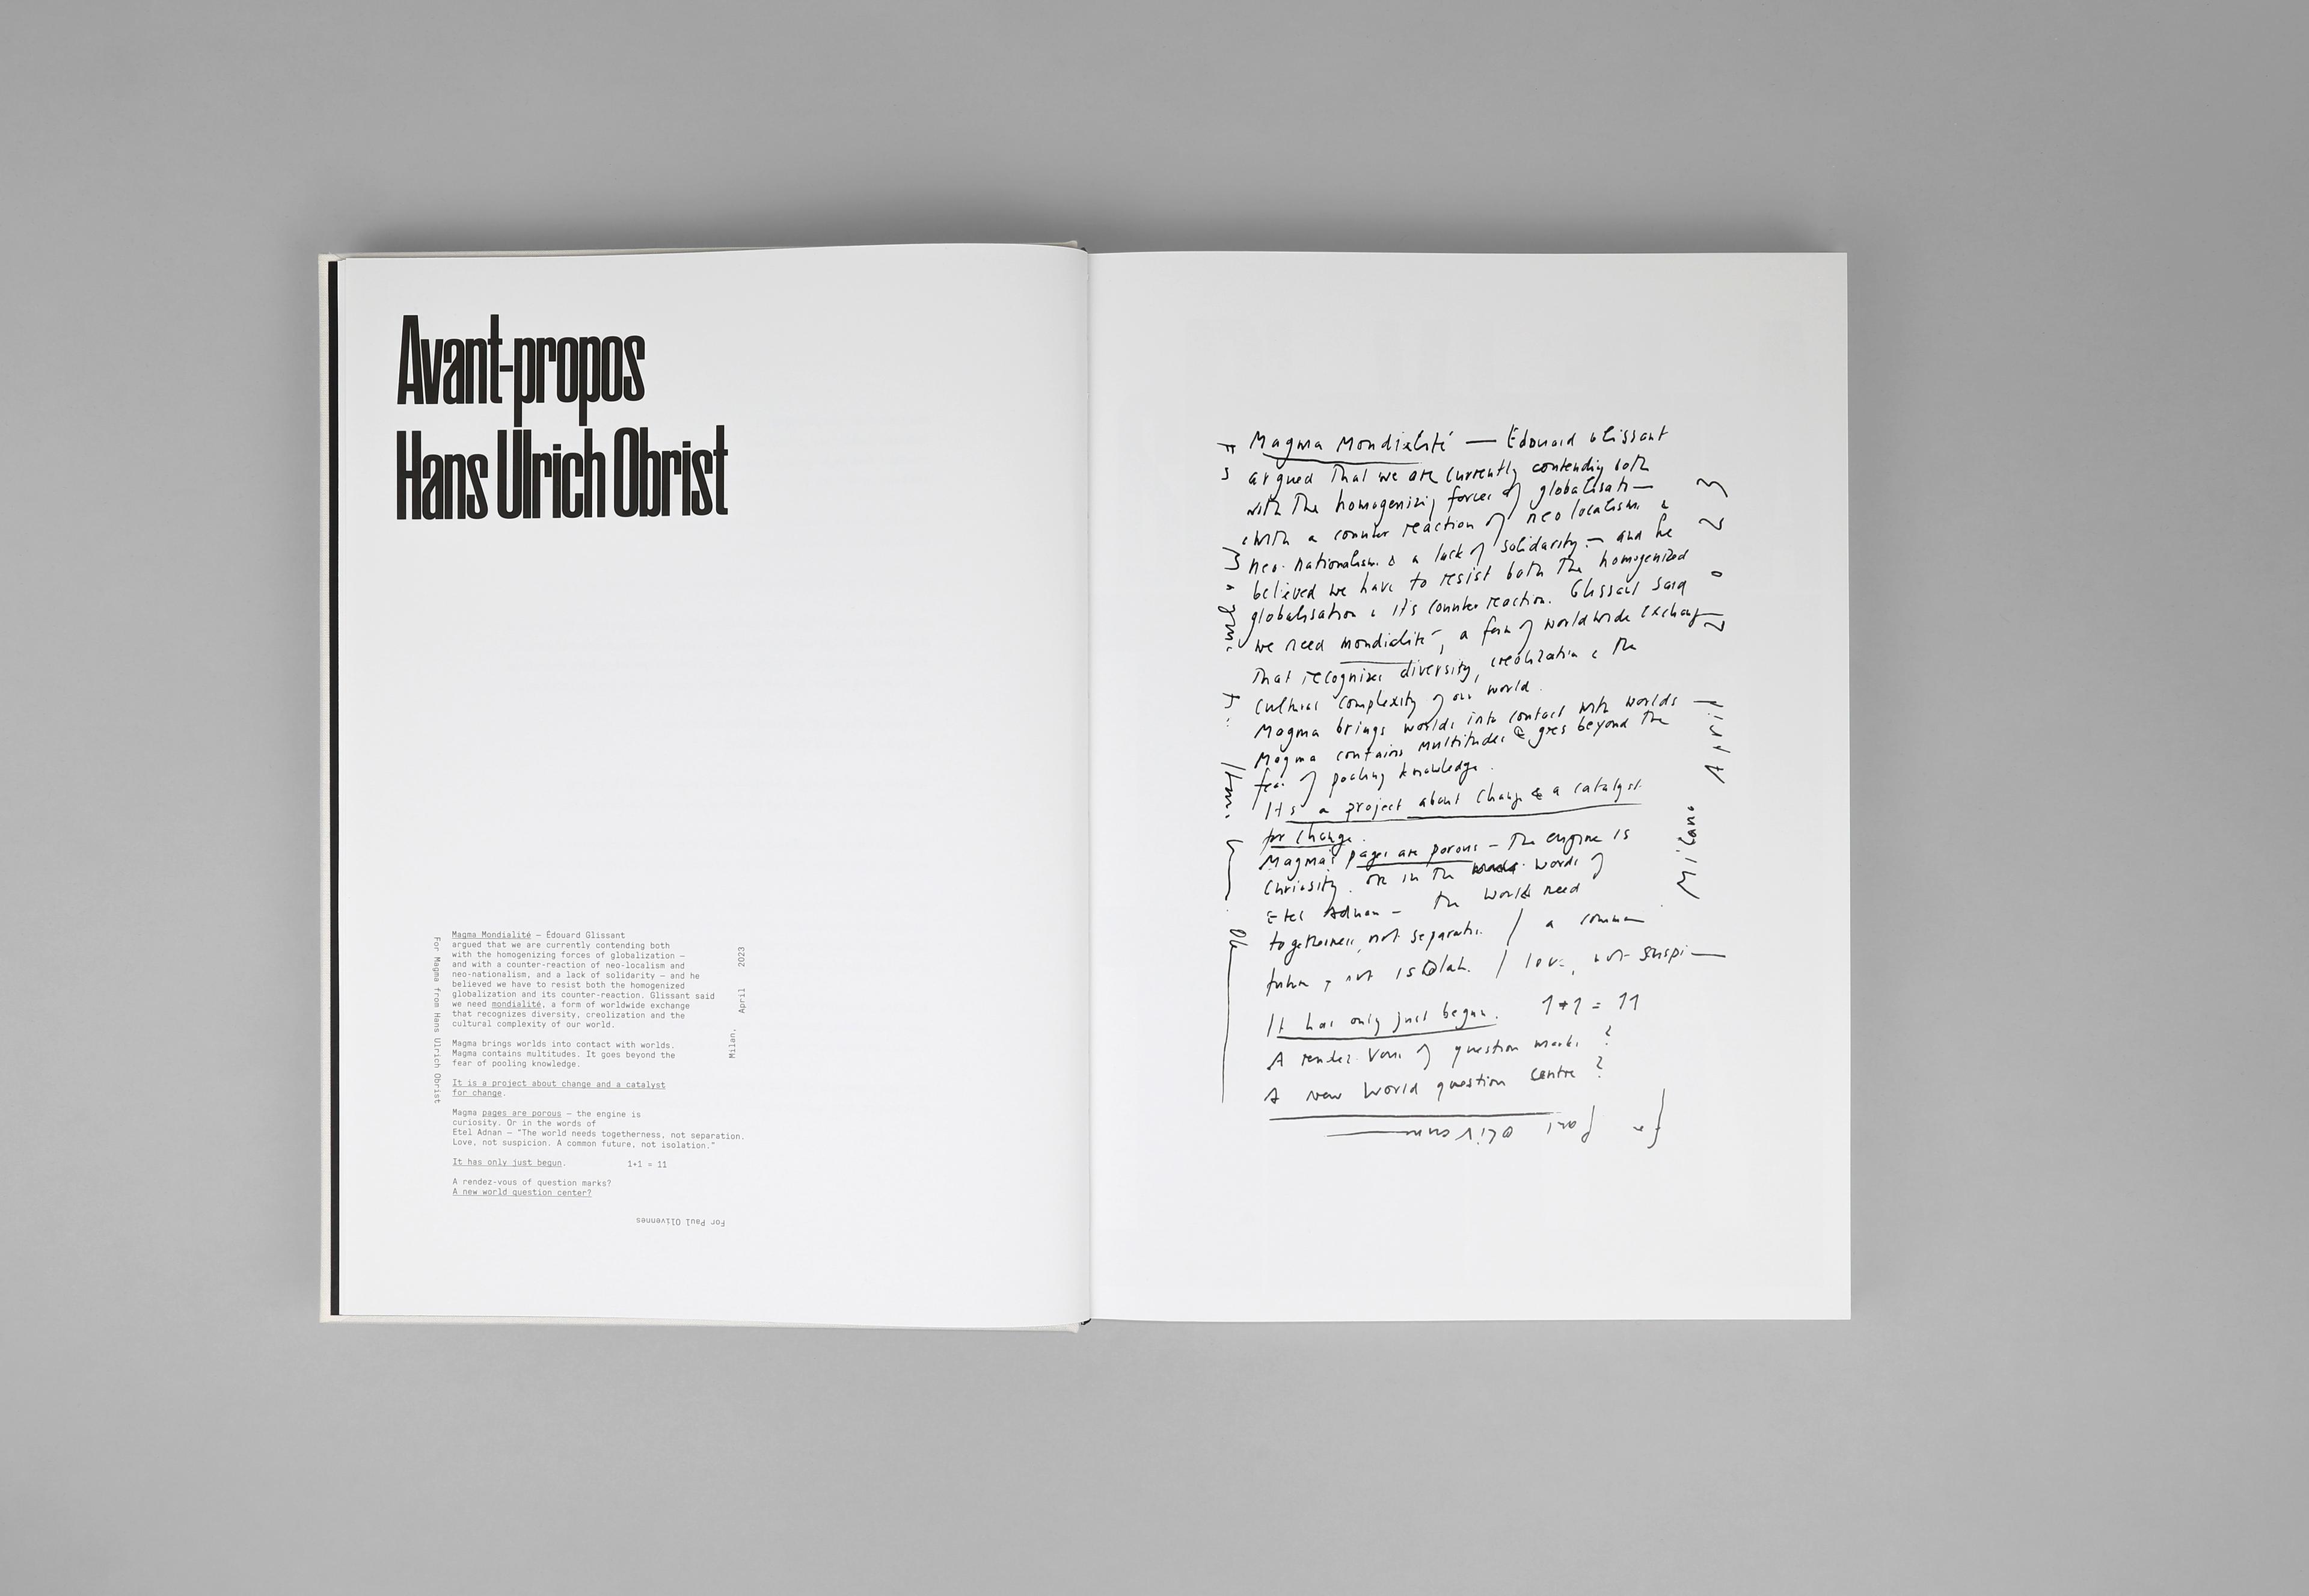 Avant-propos
Hans Ulrich Obrist
Magma Mondialité — Édouard Glissant
argued that we are currently contending both
with the homogenizing forces of globalization —
and with a counter-reaction of neo-localism and
neo-nationalism, and a lack of solidarity — and he
believed we have to resist both the homogenized
globalization and its counter-reaction. Glissant said
we need mondialité, a form of worldwide exchange
that recognizes diversity, creolization and the
cultural complexity of our world.
Magma brings worlds into contact with worlds.
Magma contains multitudes. It goes beyond the
fear of pooling knowledge.
It is a project about change and a catalyst
for change.
Magma pages are porous — the engine is
curiosity. Or in the words of
Etel Adnan — "The world needs togetherness, not separation.
Love, not suspicion. A common future, not isolation."
It has only just begun. 1+1 = 11
A rendez-vous of question marks?
A new world question center?
For Paul Olivennes
For Magma from Hans Ulrich Obrist
Milan, April 2023
Magma Mondialité — Édouard Glissant
argued that we are currently contending both
with the homogenizing forces of globalisati—
with a counter reaction of neo localism &
neo-nationalism & a lack of solidarity — and he
believed we have to resist both the homogenized
globalisation & it's counter reaction. Glissant said
we need mondialité, a form of worldwide exchange
that recognizes diversity, creolization & the
cultural complexity of our world.
Magma brings worlds into contact with worlds
Magma contains multitudes & goes beyond the
fear of pooling knowledge.
Its a project about change & a catalyst
for change.
Magma's pages are porous — The engine is
Curiosity. or in the words of
Etel Adnan — The world need
togetherness, not separati. / a common
future, not isolati. / love, not suspi—
It has only just begun. 1+1 = 11
A rendez-vous of question marks ?
A new world question centre ?
for Paul Olivennes
Magma
Milano April 2023